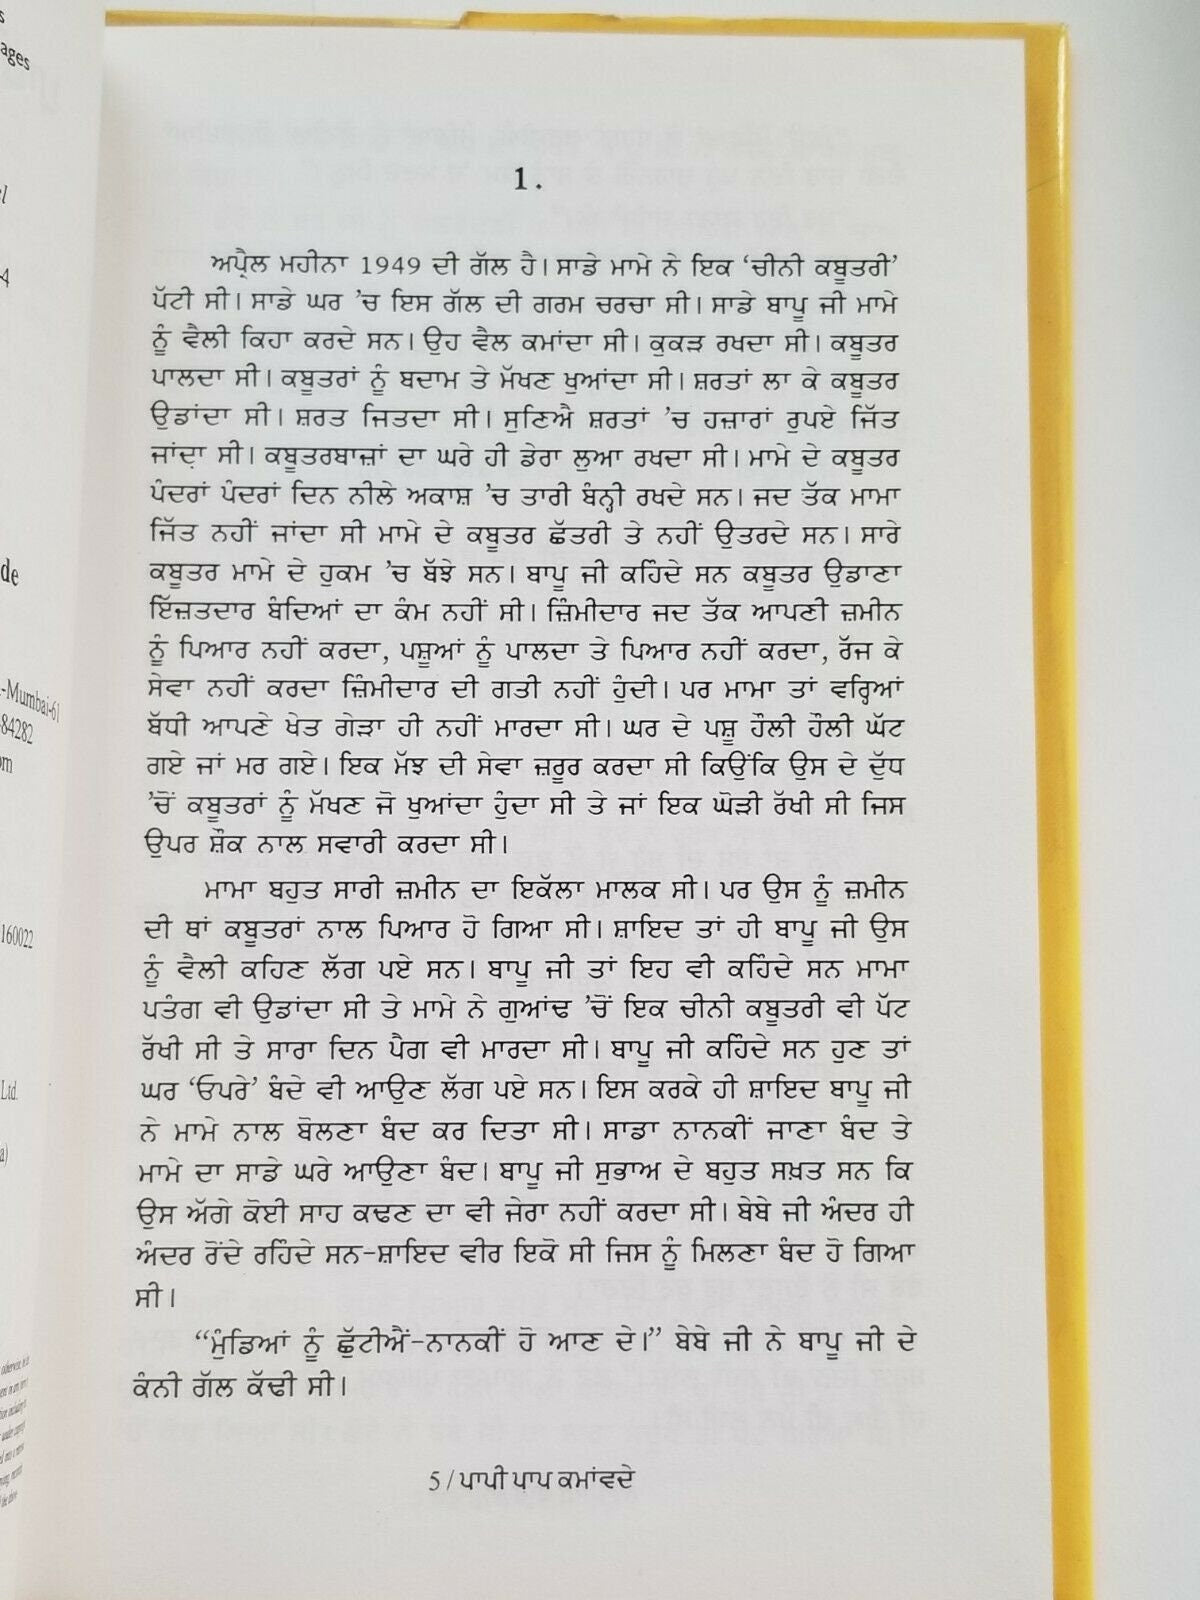 s
ages
el
-4
de
-Mumbai-61
84282
om
160022
Ltd.
a)
1.
ਅਪ੍ਰੈਲ ਮਹੀਨਾ 1949 ਦੀ ਗੱਲ ਹੈ। ਸਾਡੇ ਮਾਮੇ ਨੇ ਇਕ ‘ਚੀਨੀ ਕਬੂਤਰੀ’
ਪੱਟੀ ਸੀ। ਸਾਡੇ ਘਰ ’ਚ ਇਸ ਗੱਲ ਦੀ ਗਰਮ ਚਰਚਾ ਸੀ। ਸਾਡੇ ਬਾਪੂ ਜੀ ਮਾਮੇ
ਨੂੰ ਵੈਲੀ ਕਿਹਾ ਕਰਦੇ ਸਨ। ਉਹ ਵੈਲ ਕਮਾਂਦਾ ਸੀ। ਕੁਕੜ ਰਖਦਾ ਸੀ। ਕਬੂਤਰ
ਪਾਲਦਾ ਸੀ। ਕਬੂਤਰਾਂ ਨੂੰ ਬਦਾਮ ਤੇ ਮੱਖਣ ਖੁਆਂਦਾ ਸੀ। ਸ਼ਰਤਾਂ ਲਾ ਕੇ ਕਬੂਤਰ
ਉਡਾਂਦਾ ਸੀ। ਸ਼ਰਤ ਜਿਤਦਾ ਸੀ। ਸੁਣਿਐ ਸ਼ਰਤਾਂ ’ਚ ਹਜ਼ਾਰਾਂ ਰੁਪਏ ਜਿੱਤ
ਜਾਂਦਾ ਸੀ। ਕਬੂਤਰਬਾਜ਼ਾਂ ਦਾ ਘਰੇ ਹੀ ਡੇਰਾ ਲੁਆ ਰਖਦਾ ਸੀ। ਮਾਮੇ ਦੇ ਕਬੂਤਰ
ਪੰਦਰਾਂ ਪੰਦਰਾਂ ਦਿਨ ਨੀਲੇ ਅਕਾਸ਼ ’ਚ ਤਾਰੀ ਬੰਨ੍ਹੀ ਰਖਦੇ ਸਨ। ਜਦ ਤੱਕ ਮਾਮਾ
ਜਿੱਤ ਨਹੀਂ ਜਾਂਦਾ ਸੀ ਮਾਮੇ ਦੇ ਕਬੂਤਰ ਛੱਤਰੀ ਤੇ ਨਹੀਂ ਉਤਰਦੇ ਸਨ। ਸਾਰੇ
ਕਬੂਤਰ ਮਾਮੇ ਦੇ ਹੁਕਮ ’ਚ ਬੱਝੇ ਸਨ। ਬਾਪੂ ਜੀ ਕਹਿੰਦੇ ਸਨ ਕਬੂਤਰ ਉਡਾਣਾ
ਇੱਜ਼ਤਦਾਰ ਬੰਦਿਆਂ ਦਾ ਕੰਮ ਨਹੀਂ ਸੀ। ਜ਼ਿੰਮੀਦਾਰ ਜਦ ਤੱਕ ਆਪਣੀ ਜ਼ਮੀਨ
ਨੂੰ ਪਿਆਰ ਨਹੀਂ ਕਰਦਾ, ਪਸ਼ੂਆਂ ਨੂੰ ਪਾਲਦਾ ਤੇ ਪਿਆਰ ਨਹੀਂ ਕਰਦਾ, ਰੱਜ ਕੇ
ਸੇਵਾ ਨਹੀਂ ਕਰਦਾ ਜ਼ਿੰਮੀਦਾਰ ਦੀ ਗਤੀ ਨਹੀਂ ਹੁੰਦੀ। ਪਰ ਮਾਮਾ ਤਾਂ ਵਰ੍ਹਿਆਂ
ਬੱਧੀ ਆਪਣੇ ਖੇਤ ਗੇੜਾ ਹੀ ਨਹੀਂ ਮਾਰਦਾ ਸੀ। ਘਰ ਦੇ ਪਸ਼ੂ ਹੌਲੀ ਹੌਲੀ ਘੱਟ
ਗਏ ਜਾਂ ਮਰ ਗਏ। ਇਕ ਮੱਝ ਦੀ ਸੇਵਾ ਜ਼ਰੂਰ ਕਰਦਾ ਸੀ ਕਿਉਂਕਿ ਉਸ ਦੇ ਦੁੱਧ
’ਚੋਂ ਕਬੂਤਰਾਂ ਨੂੰ ਮੱਖਣ ਜੋ ਖੁਆਂਦਾ ਹੁੰਦਾ ਸੀ ਤੇ ਜਾਂ ਇਕ ਘੋੜੀ ਰੱਖੀ ਸੀ ਜਿਸ
ਉਪਰ ਸ਼ੌਕ ਨਾਲ ਸਵਾਰੀ ਕਰਦਾ ਸੀ।
ਮਾਮਾ ਬਹੁਤ ਸਾਰੀ ਜ਼ਮੀਨ ਦਾ ਇਕੱਲਾ ਮਾਲਕ ਸੀ। ਪਰ ਉਸ ਨੂੰ ਜ਼ਮੀਨ
ਦੀ ਥਾਂ ਕਬੂਤਰਾਂ ਨਾਲ ਪਿਆਰ ਹੋ ਗਿਆ ਸੀ। ਸ਼ਾਇਦ ਤਾਂ ਹੀ ਬਾਪੂ ਜੀ ਉਸ
ਨੂੰ ਵੈਲੀ ਕਹਿਣ ਲੱਗ ਪਏ ਸਨ। ਬਾਪੂ ਜੀ ਤਾਂ ਇਹ ਵੀ ਕਹਿੰਦੇ ਸਨ ਮਾਮਾ
ਪਤੰਗ ਵੀ ਉਡਾਂਦਾ ਸੀ ਤੇ ਮਾਮੇ ਨੇ ਗੁਆਂਢ ’ਚੋਂ ਇਕ ਚੀਨੀ ਕਬੂਤਰੀ ਵੀ ਪੱਟ
ਰੱਖੀ ਸੀ ਤੇ ਸਾਰਾ ਦਿਨ ਪੈਗ ਵੀ ਮਾਰਦਾ ਸੀ। ਬਾਪੂ ਜੀ ਕਹਿੰਦੇ ਸਨ ਹੁਣ ਤਾਂ
ਘਰ ‘ਓਪਰੇ’ ਬੰਦੇ ਵੀ ਆਉਣ ਲੱਗ ਪਏ ਸਨ। ਇਸ ਕਰਕੇ ਹੀ ਸ਼ਾਇਦ ਬਾਪੂ ਜੀ
ਨੇ ਮਾਮੇ ਨਾਲ ਬੋਲਣਾ ਬੰਦ ਕਰ ਦਿਤਾ ਸੀ। ਸਾਡਾ ਨਾਨਕੀਂ ਜਾਣਾ ਬੰਦ ਤੇ
ਮਾਮੇ ਦਾ ਸਾਡੇ ਘਰੇ ਆਉਣਾ ਬੰਦ। ਬਾਪੂ ਜੀ ਸੁਭਾਅ ਦੇ ਬਹੁਤ ਸਖ਼ਤ ਸਨ ਕਿ
ਉਸ ਅੱਗੇ ਕੋਈ ਸਾਹ ਕਢਣ ਦਾ ਵੀ ਜੇਰਾ ਨਹੀਂ ਕਰਦਾ ਸੀ। ਬੇਬੇ ਜੀ ਅੰਦਰ ਹੀ
ਅੰਦਰ ਰੋਂਦੇ ਰਹਿੰਦੇ ਸਨ-ਸ਼ਾਇਦ ਵੀਰ ਇਕੋ ਸੀ ਜਿਸ ਨੂੰ ਮਿਲਣਾ ਬੰਦ ਹੋ ਗਿਆ
ਸੀ।
“ਮੁੰਡਿਆਂ ਨੂੰ ਛੁੱਟੀਐਂ-ਨਾਨਕੀਂ ਹੋ ਆਣ ਦੇ।” ਬੇਬੇ ਜੀ ਨੇ ਬਾਪੂ ਜੀ ਦੇ
ਕੰਨੀ ਗੱਲ ਕੱਢੀ ਸੀ।
5/ਪਾਪੀ ਪਾਪ ਕਮਾਂਵਦੇ